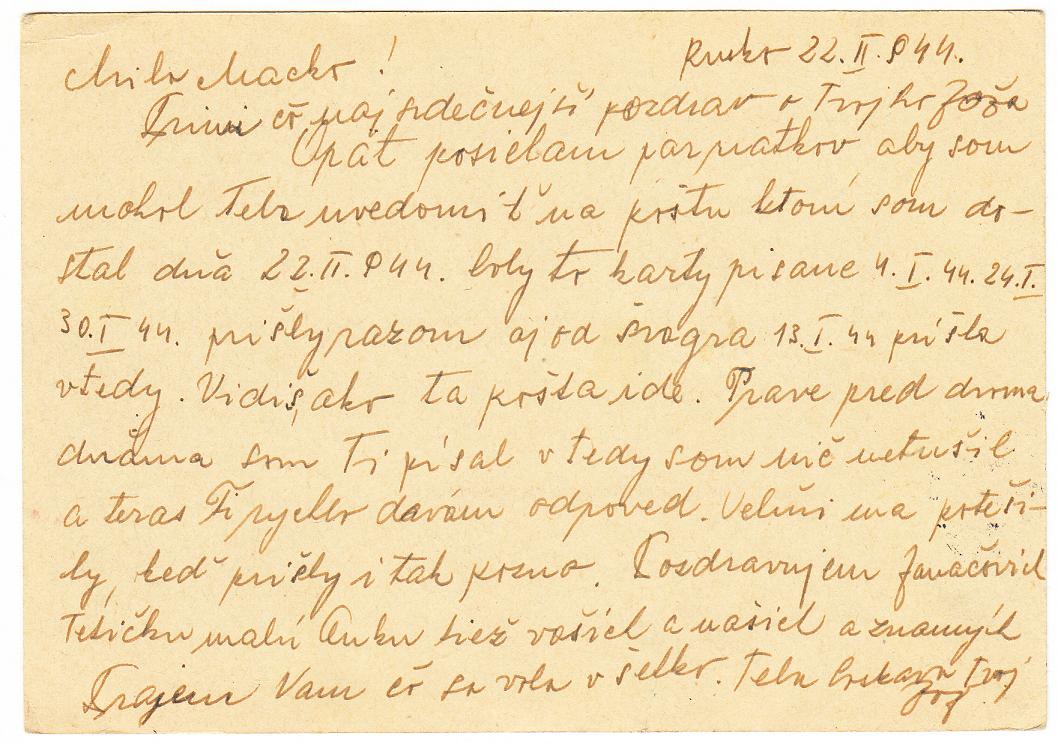 Rusko 22.II.944.
Milá Macko!
Primi čo najsrdečnejší pozdrav o Tvojho Joža
Opät posielam par riatkov aby som
mohol Teba uvedomiť na poštu ktorú som do-
stal dňa 22.II.944. boly to karty pisane 4.I.44. 24.I.
30.I 44. prišly razom aj od švagra 13.I.44 prišla
vtedy. Vidiš, ako ta pošta ide. Prave pred dvoma
dňama som Ti písal vtedy som nič netušil
a teras Ti rychlo davám odpoved. Velmi ma poteši-
ly, keď prišly i tak pozno. Pozdravujem Janačovich
Tetičku malú Anku tiež vašich a našich a znamych
Prajem Vam čo sa vola všetko. Teba bozkava Tvoj
Jož